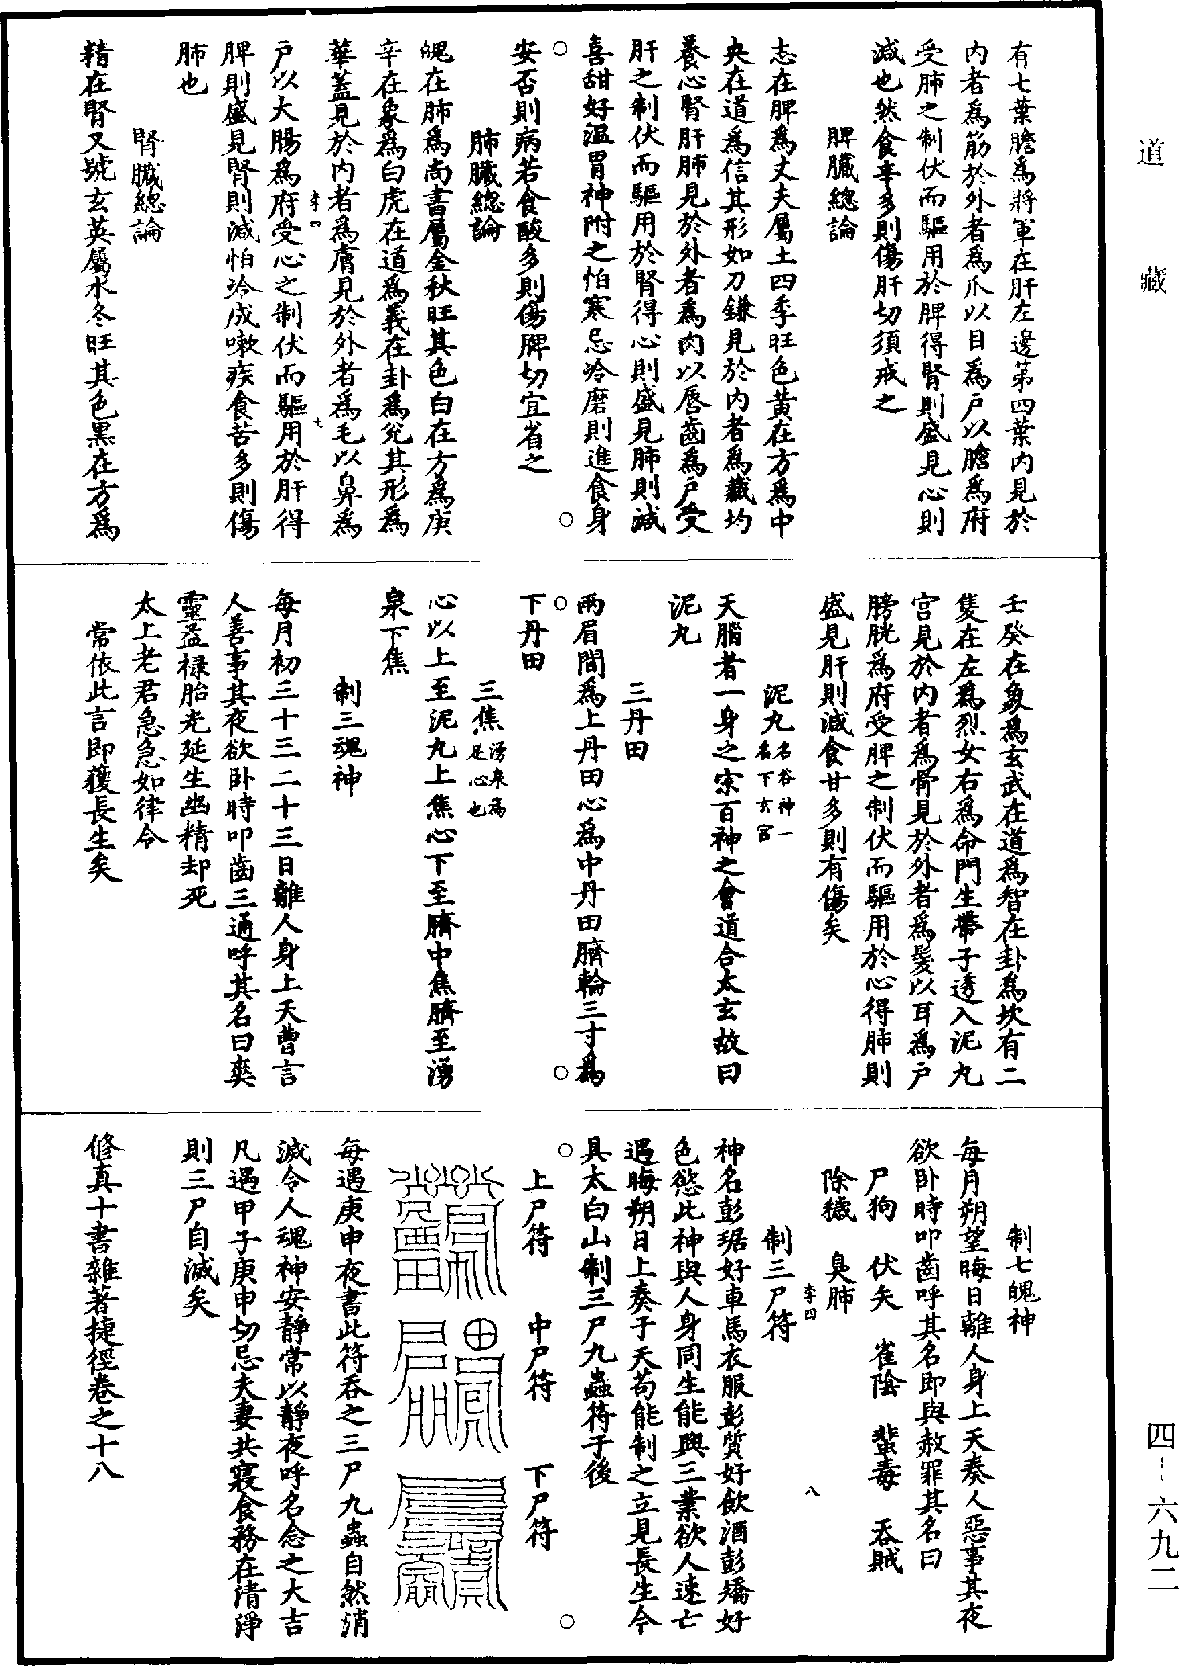 道藏
有七葉膽爲將軍在肝左邊第四葉內見於
內者爲筋於外者爲爪以目爲戶以膽爲府
受肺之制伏而驅用於脾得腎則盛見心則
減也然食辛多則傷肝切須戒之
脾臟總論
志在脾爲丈夫屬土四季旺色黃在方爲中
央在道爲信其形如刀鎌見於內者爲藏均
養心腎肝肺見於外者爲肉以唇齒爲戶受
肝之制伏而驅用於腎得心則盛見肺則減
喜甜好溫胃神附之怕寒忌冷磨則進食身
安否則病若食酸多則傷脾切宜省之
肺臟總論
魄在肺爲尚書屬金秋旺其色白在方爲庚
辛在象爲白虎在道爲義在卦爲兌其形爲
華蓋見於內者爲膚見於外者爲毛以鼻爲
李四
七
戶以大腸爲府受心之制伏而驅用於肝得
脾則盛見腎則減怕冷成嗽疾食苦多則傷
肺也
腎臟總論
精在腎又號玄英屬水冬旺其色黑在方爲
壬癸在象爲玄武在道爲智在卦爲坎有二
隻在左爲烈女右爲命門生帶子透入泥丸
宮見於內者爲骨見於外者爲髮以耳爲戶
膀胱爲府受脾之制伏而驅用於心得肺則
盛見肝則減食甘多則有傷矣
泥丸名谷神一名下玄宮
天腦者一身之宗百神之會道合太玄故曰
泥丸
三丹田
兩眉間爲上丹田心爲中丹田臍輪三寸爲
下丹田
三焦湧泉爲足心也
心以上至泥丸上焦心下至臍中焦臍至湧
泉下焦
制三魂神
每月初三十三二十三日離人身上天曹言
人善事其夜欲臥時叩齒三通呼其名曰爽
靈益祿胎光延生幽精却死
太上老君急急如律令
常依此言即獲長生矣
制七魄神
每月朔望晦日離人身上天奏人惡事其夜
欲臥時叩齒呼其名即與赦罪其名曰
尸狗　伏矢　雀陰　蜚毒　吞賊
除穢　臭肺
李四
八
制三尸符
神名彭琚好車馬衣服彭質好飲酒彭矯好
色慾此神與人身同生能與三業欲人速亡
遇晦朔日上奏于天苟能制之立見長生今
具太白山制三尸九蟲符于後
上尸符　中尸符　下尸符
每遇庚申夜書此符吞之三尸九蟲自然消
滅令人魂神安靜常以靜夜呼名念之大吉
凡遇甲子庚申切忌夫妻共寢食務在清淨
則三尸自滅矣
修真十書雜著捷徑卷之十八
四-六九二